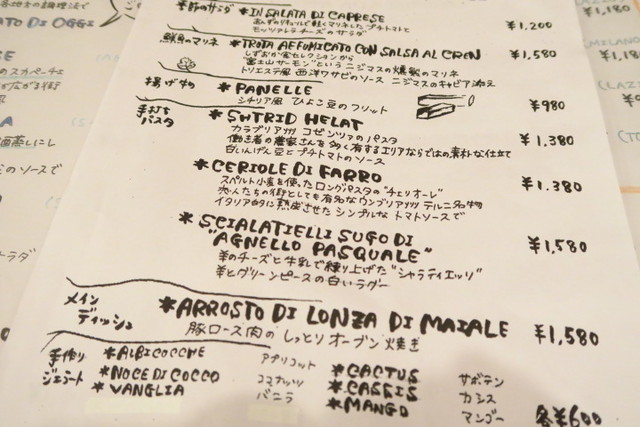 季節のサラダ *IN SALATA DI CAPRESE ¥1,200
モッツァレラチーズのサラダ
鮮魚のマリネ *TROTA AFFUMICATO CON SALSA AL CREN ¥1,580
"富士山サーモン"という ニジマスの燻製のマリネ
トリエステ風 西洋ワサビのソース ニジマスのキャビア添え
揚げ物 *PANELLE ¥980
シチリア風 ひよこ豆のフリット
手打ちパスタ *SHTRID HELAT ¥1.380
カラブリア州 コゼンツァのパスタ
働き者の農家さんを多く有するエリアならではの素朴な仕立て
白いんげん豆とプチトマトのソース
*CERIOLE DI FARRO ¥1.380
スペルト小麦を使ったロングパスタの"チェリオーレ"
恋人たちの街としても有名なウンブリア州 テルニ名物
イタリア的に熟成させた シンプルな トマトソースで
*SCIALATIELLI SUGO DI
"AGNELLO PASQUALE" ¥1,580
羊のチーズと牛乳で練り上げた"シャラティエッリ"
羊とグリーンピースの白いラグー
メイン
ディッシュ *ARROSTO DI LONZA DI MAIALE ¥1,580
豚ロース肉の しっとりオーブン焼き
手作り *ALBICOCCHE アプリコット *CACTUS サボテン
ジェラート *NOCE DI COCCO ココナッツ *CASSIS カシス
*VANGLIA バニラ *MANGO マンゴー 各¥600